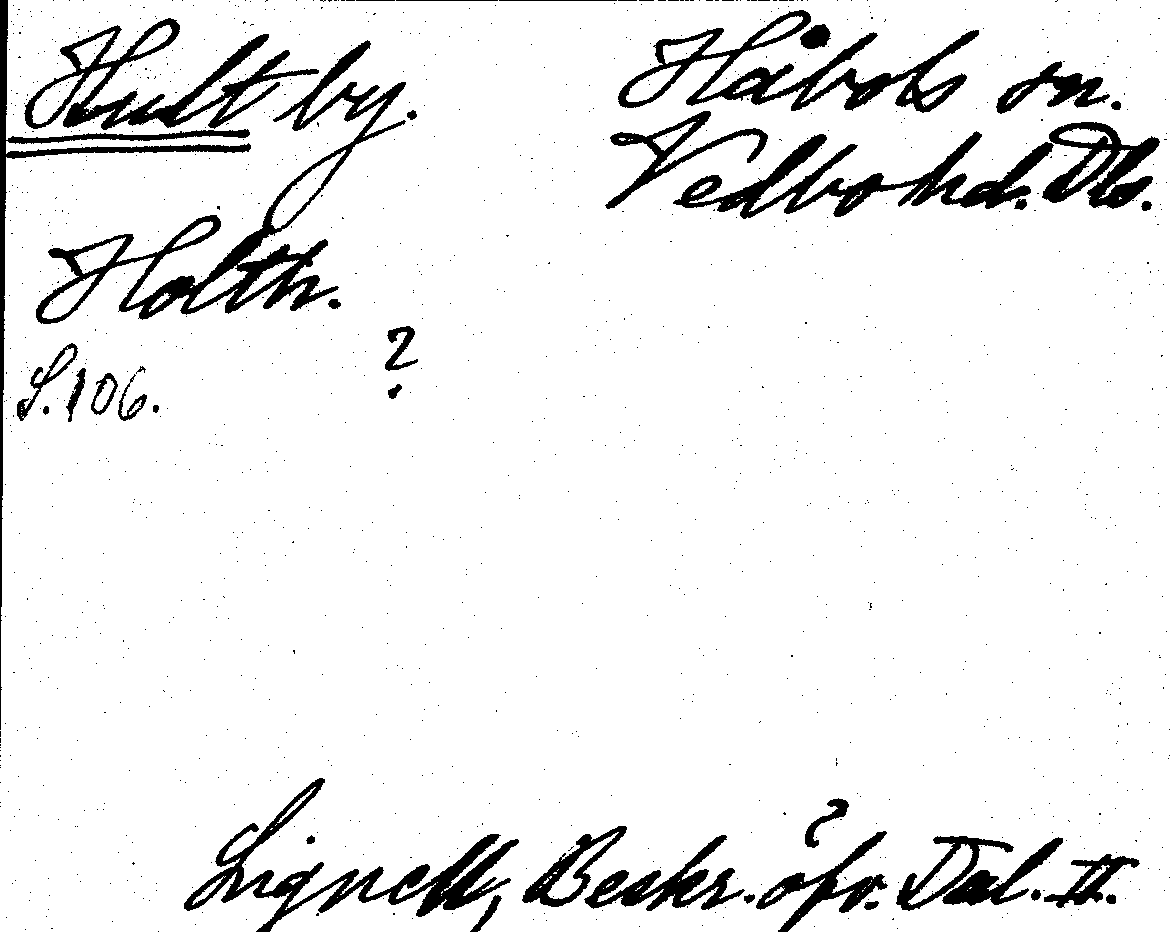 Hult by.
Håbols sn.
Vedbo hd. Dls.
Holth.
?
S. 106.
Lignell, Beskr. öfv. Dal. II.